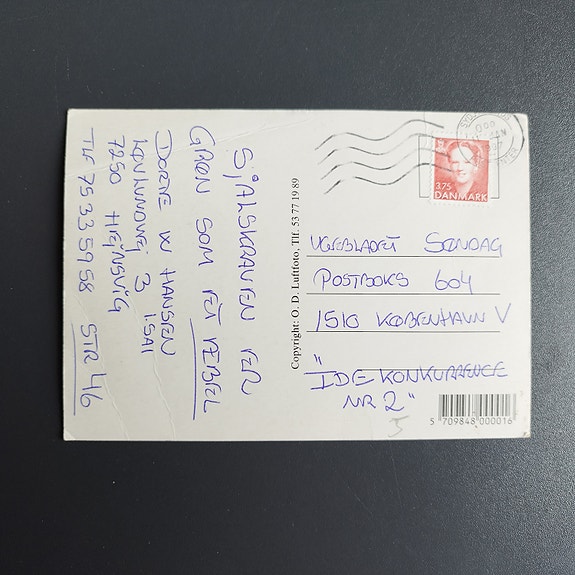 SJALSKRAVEN ER
GRØN SOM ET ÆBLE
DORTE W HANSEN
3 I.SAL
7250 HEJNSVIG
TLF 75335958 STR 46
Copyright: O. D. Luftfoto, Tlf. 53 77 19 89
3.75
DANMARK
UGEBLADET SØNDAG
POSTBOKS 604
1510 KØBENHAVN V
"IDE KONKURRENCE
NR 2"
5
5 709848 000016